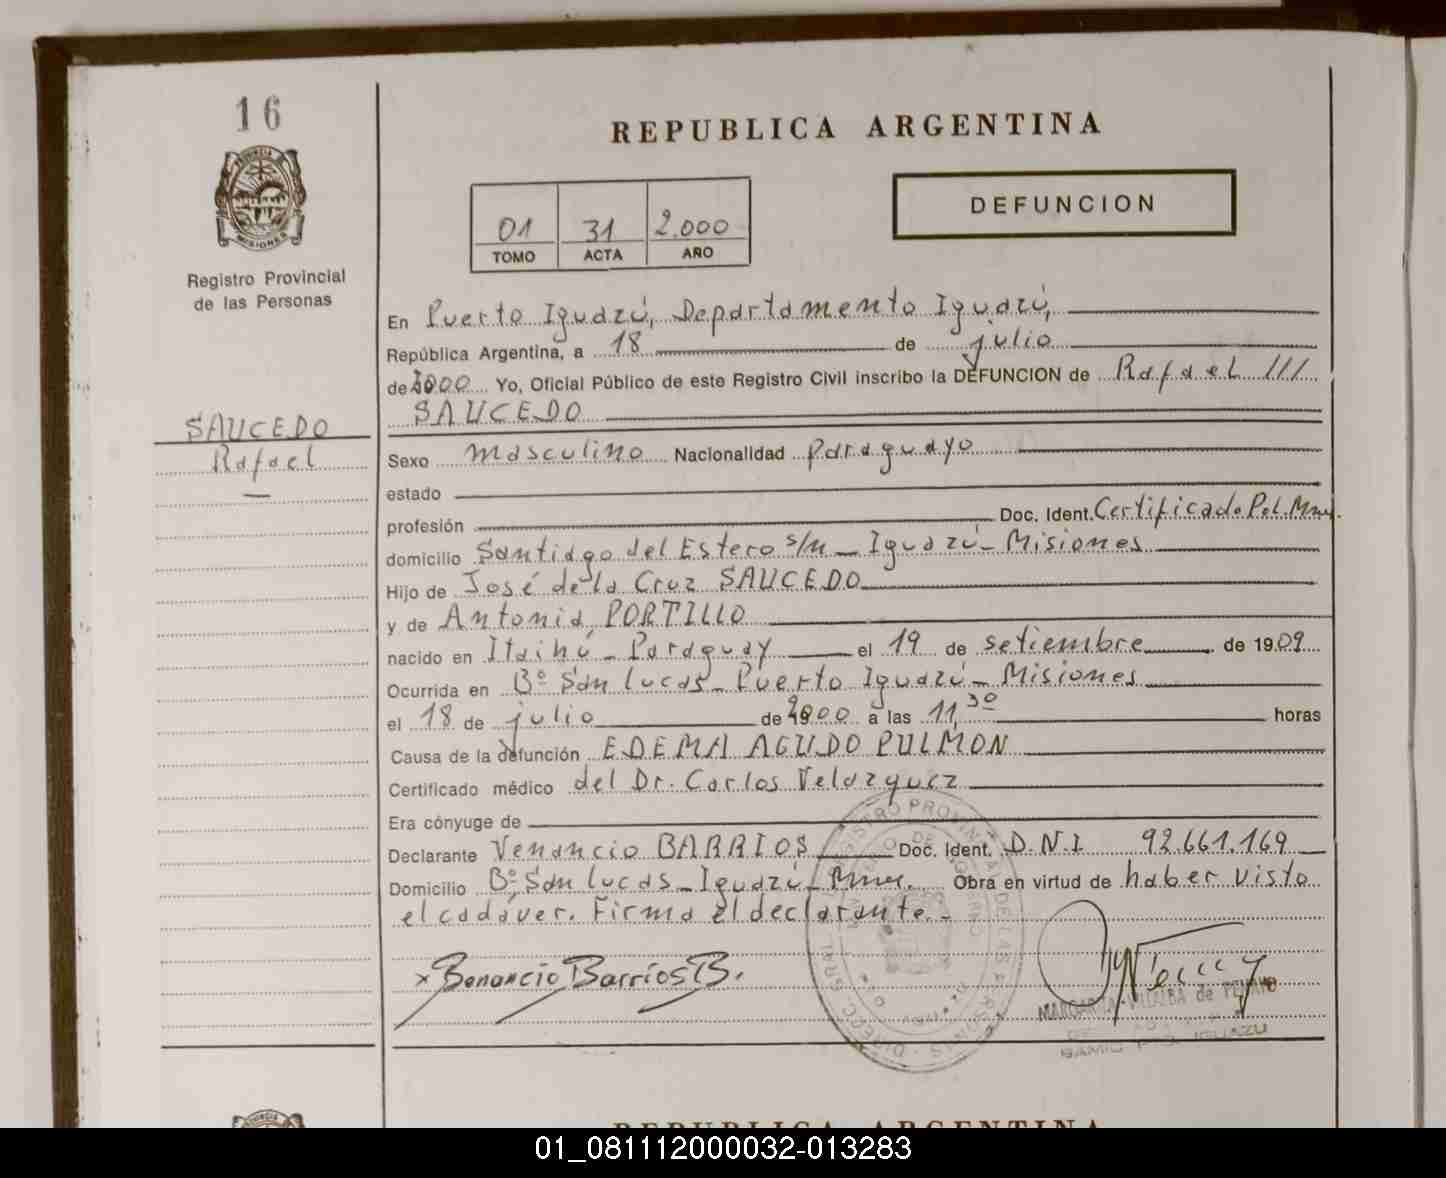 16
PROVINCIA DE
MISIONES
Registro Provincial
de las Personas
SAUCEDO
Rafael
REPUBLICA ARGENTINA
01 31 2.000
TOMO ACTA AÑO
DEFUNCION
En Puerto Iguazú, Departamento Iguazú,
República Argentina, a 18 de julio
de 2000 Yo, Oficial Público de este Registro Civil inscribo la DEFUNCION de Rafael ///
SAUCEDO
Sexo masculino Nacionalidad paraguayo
estado
profesión Doc. Ident. Certificado Pol. Mnes.
domicilio Santiago del Estero s/n - Iguazú - Misiones
Hijo de José de la Cruz SAUCEDO
y de Antonia PORTILLO
nacido en Itaihú - Paraguay el 19 de setiembre de 1909
Ocurrida en Bº San Lucas - Puerto Iguazú - Misiones
el 18 de julio de 2000 a las 11,30 horas
Causa de la defunción EDEMA AGUDO PULMON
Certificado médico del Dr. Carlos Velazquez
Era cónyuge de
Declarante Venancio BARRIOS Doc. Ident. D.N.I. 92.661.169
Domicilio Bº San Lucas - Iguazú - Mnes. Obra en virtud de haber visto
el cadáver. Firma el declarante. -
x Benancio Barrios B.
MARGARITA VILLALBA de
IGUAZU
REPUBLICA ARGENTINA
01_081112000032-013283